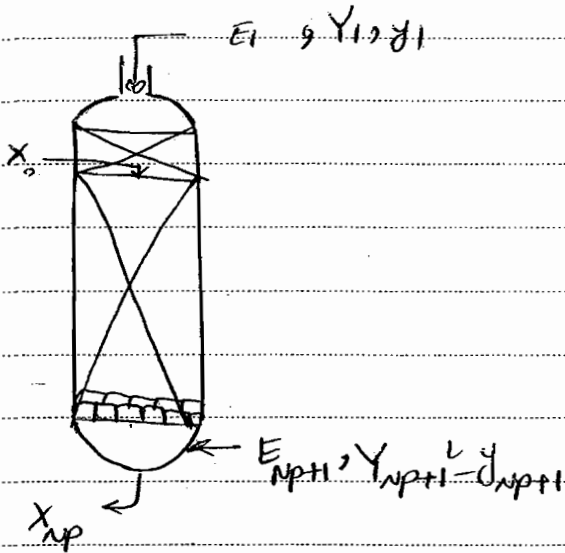 E₁ , Y₁, y₁
X₀
E_{Np+1}, Y_{Np+1} - y_{Np+1}
X_{Np}